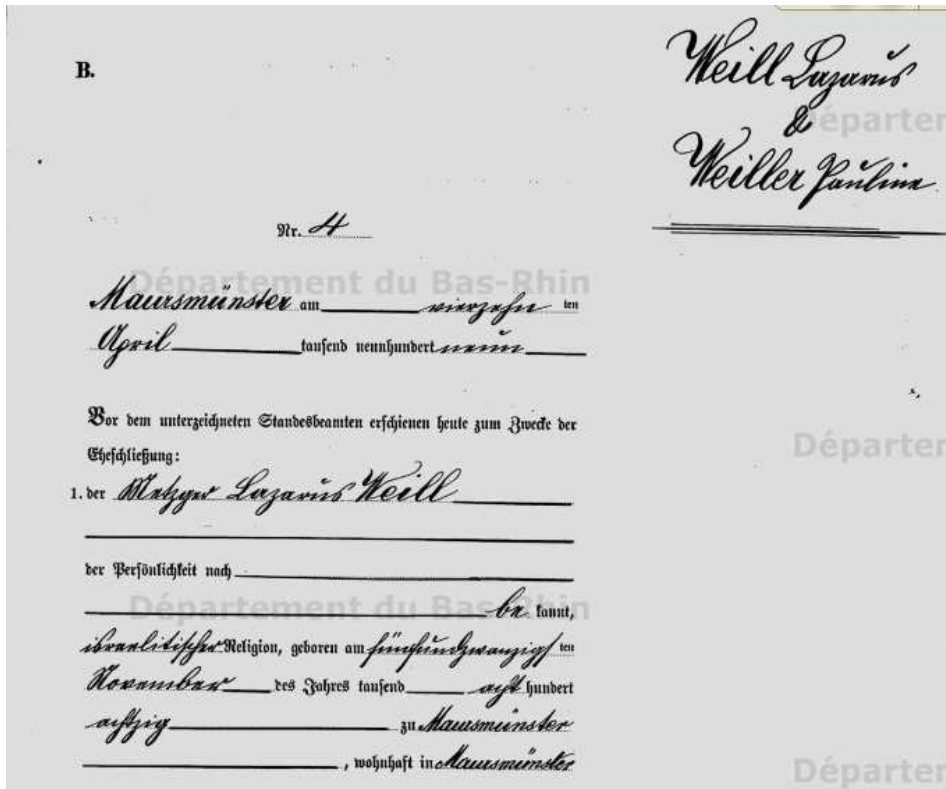 B.
Weill Lazarus
&
Weiller Pauline
Nr. 4
Département du Bas-Rhin
Maursmünster am vierzehn ten
April tausend neunhundert neun
Vor dem unterzeichneten Standesbeamten erschienen heute zum Zwecke der
Eheschließung:
1. der Metzger Lazarus Weill
der Persönlichkeit nach
be kannt,
Département du Bas-Rhin
israelitischer Religion, geboren am fünfundzwanzigs ten
November des Jahres tausend acht hundert
achtzig zu Maursmünster
, wohnhaft in Maursmünster